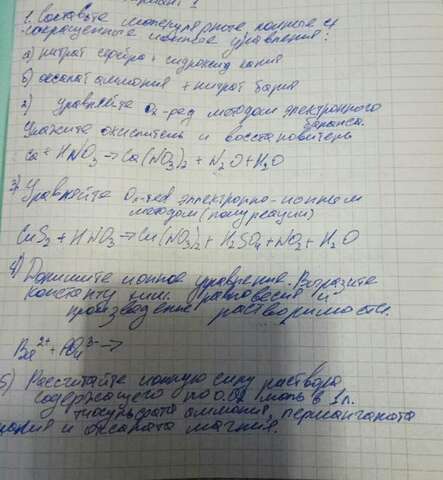 вариант 1
1. Составьте молекулярные полные и
сокращенные ионные уравнения:
а) нитрат серебра + гидроксид калия
б) оксалат аммония + нитрат бария
2) уравняйте Ox-red методом электронного
баланса.
Укажите окислитель и восстановитель
Ca + HNO3 → Ca(NO3)2 + N2O + H2O
3) Уравняйте Ox-red электронно-ионным
методом (полуреакции)
CuS2 + HNO3 → Cu(NO3)2 + H2SO4 + NO2 + H2O
4) Допишите ионное уравнение. Выразите
константу хим. равновесия и
произведение растворимости.
Ba2+ + PO4 3- →
5) Рассчитайте ионную силу раствора
содержащего по 0.01 моль в 1л.
тиосульфата аммония, перманганата
калия и оксалата магния.